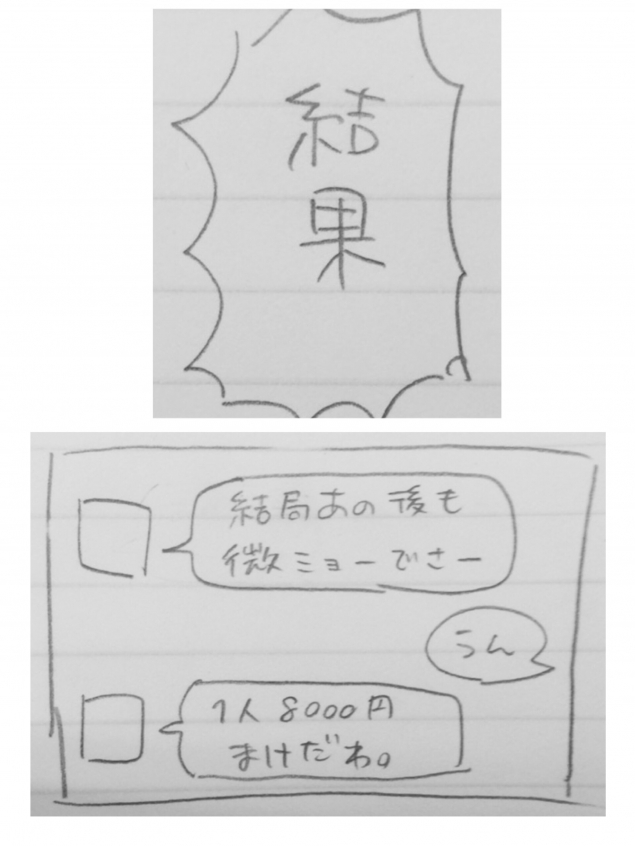 結果
結局あの後も
微ミョーでさー
うん
1人8000円
まけだわ。